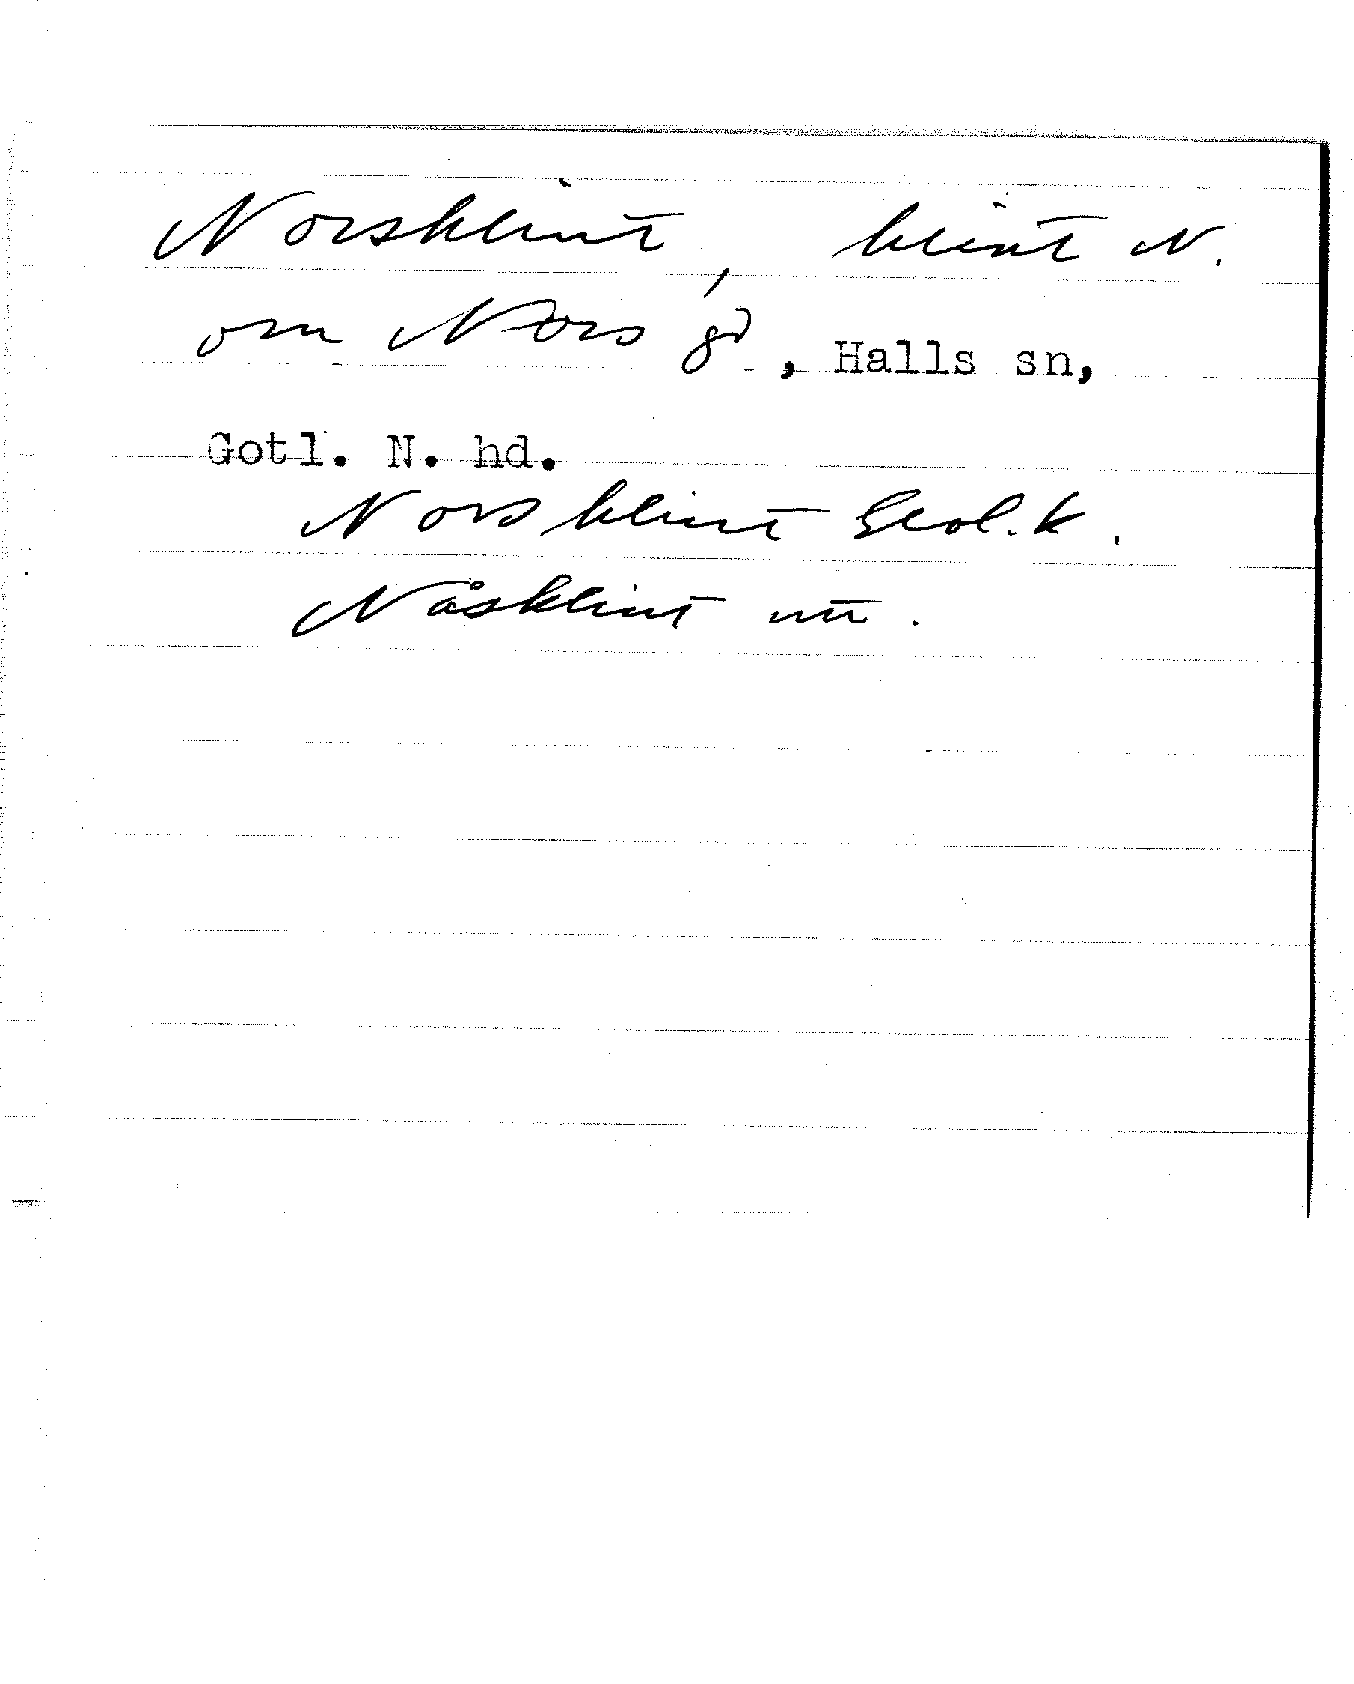 Norsklint, klint N.
om Nors gd, Halls sn,
Gotl. N. hd.
Norsklint Geol. k.
Nåsklint utt.